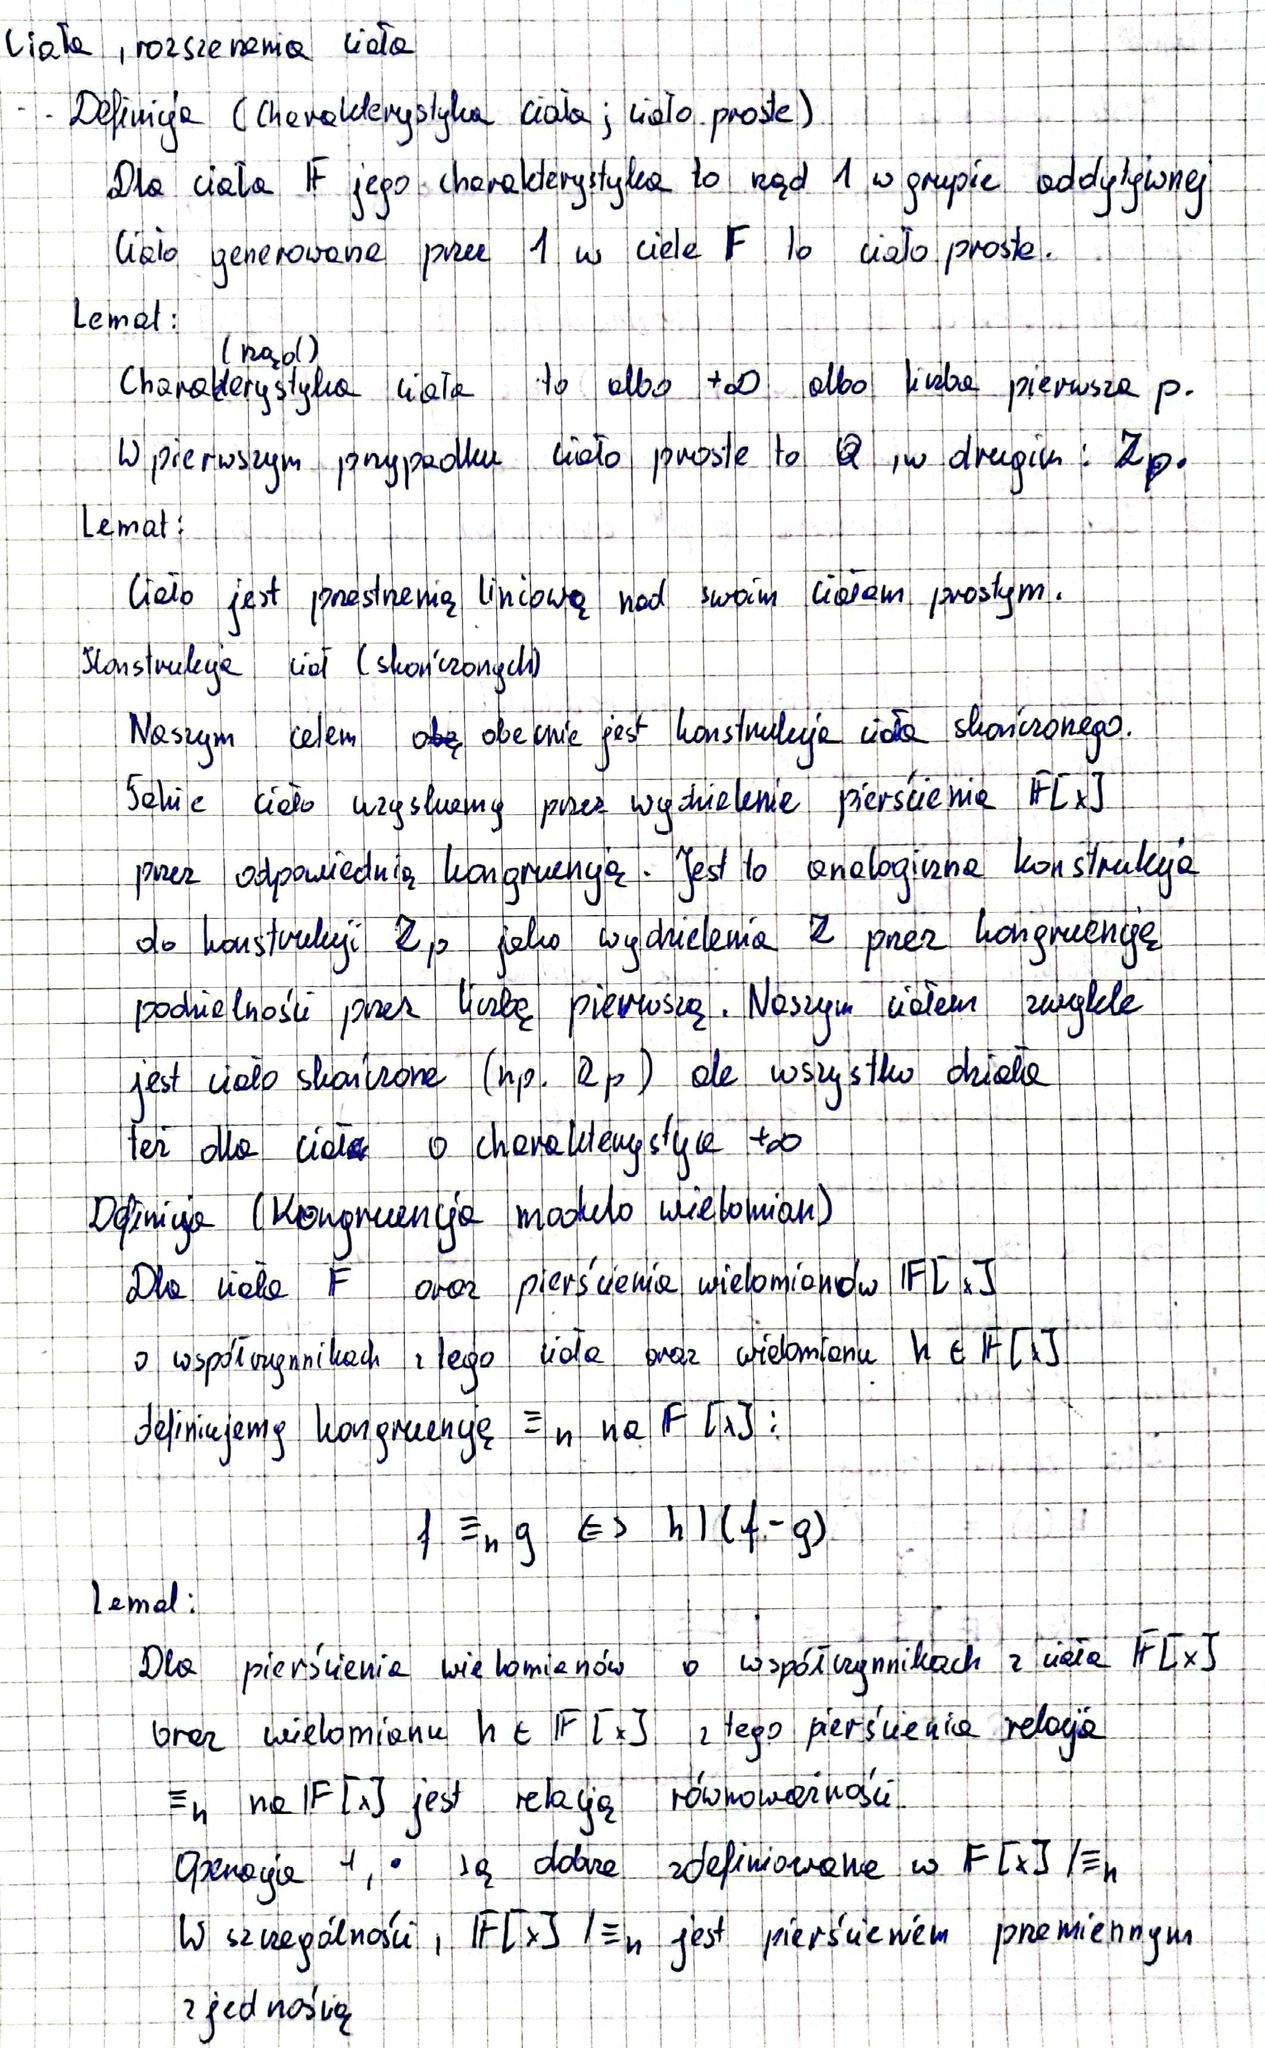 Ciała, rozszerzenia ciała
Definicja (Charakterystyka ciała; ciało proste)
Dla ciała 𝔽 jego charakterystyka to rząd 1 w grupie addytywnej
Ciało generowane przez 1 w ciele 𝔽 to ciało proste.
Lemat:
(rząd)
Charakterystyka ciała to albo +∞ albo liczba pierwsza p.
W pierwszym przypadku ciało proste to ℚ, w drugim: ℤp.
Lemat:
Ciało jest przestrzenią liniową nad swoim ciałem prostym.
Konstrukcja ciał (skończonych)
Naszym celem obecnie jest konstrukcja ciała skończonego.
Takie ciało uzyskamy przez wydzielenie pierścienia 𝔽[x]
przez odpowiednią kongruencją. Jest to analogiczna konstrukcja
do konstrukcji ℤp jako wydzielenia ℤ przez kongruencję
podzielności przez liczbę pierwszą. Naszym ciałem zwykle
jest ciało skończone (np. ℤp) ale wszystko działa
też dla ciała o charakterystyce +∞
Definicja (Kongruencja modulo wielomian)
Dla ciała 𝔽 oraz pierścienia wielomianów 𝔽[x]
o współczynnikach z tego ciała oraz wielomianu h ∈ 𝔽[x]
definiujemy kongruencję ≡h na 𝔽[x]:
f ≡h g <=> h|(f-g)
Lemat:
Dla pierścienia wielomianów o współczynnikach z ciała 𝔽[x]
oraz wielomianu h ∈ 𝔽[x] z tego pierścienia relacja
≡h na 𝔽[x] jest relacją równoważności.
Operacja +, · są dobrze zdefiniowane w 𝔽[x]/≡h
W szczególności, 𝔽[x]/≡h jest pierścieniem przemiennym
z jednością